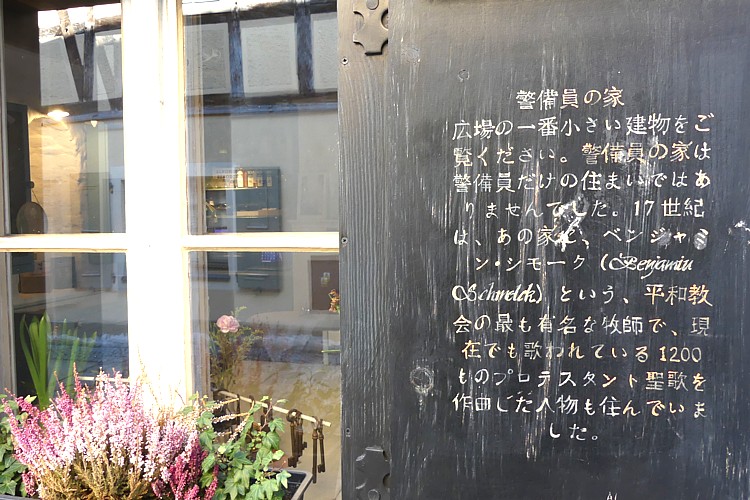 警備員の家
広場の一番小さい建物をご
覧ください。警備員の家は
警備員だけの住まいではあ
りませんでした。17世紀
は、あの家に、ベンジャミ
ン・シモーク (Benjamin
Schmolck) という、平和教
会の最も有名な牧師で、現
在でも歌われている1200
ものプロテスタント聖歌を
作曲した人物も住んでいま
した。